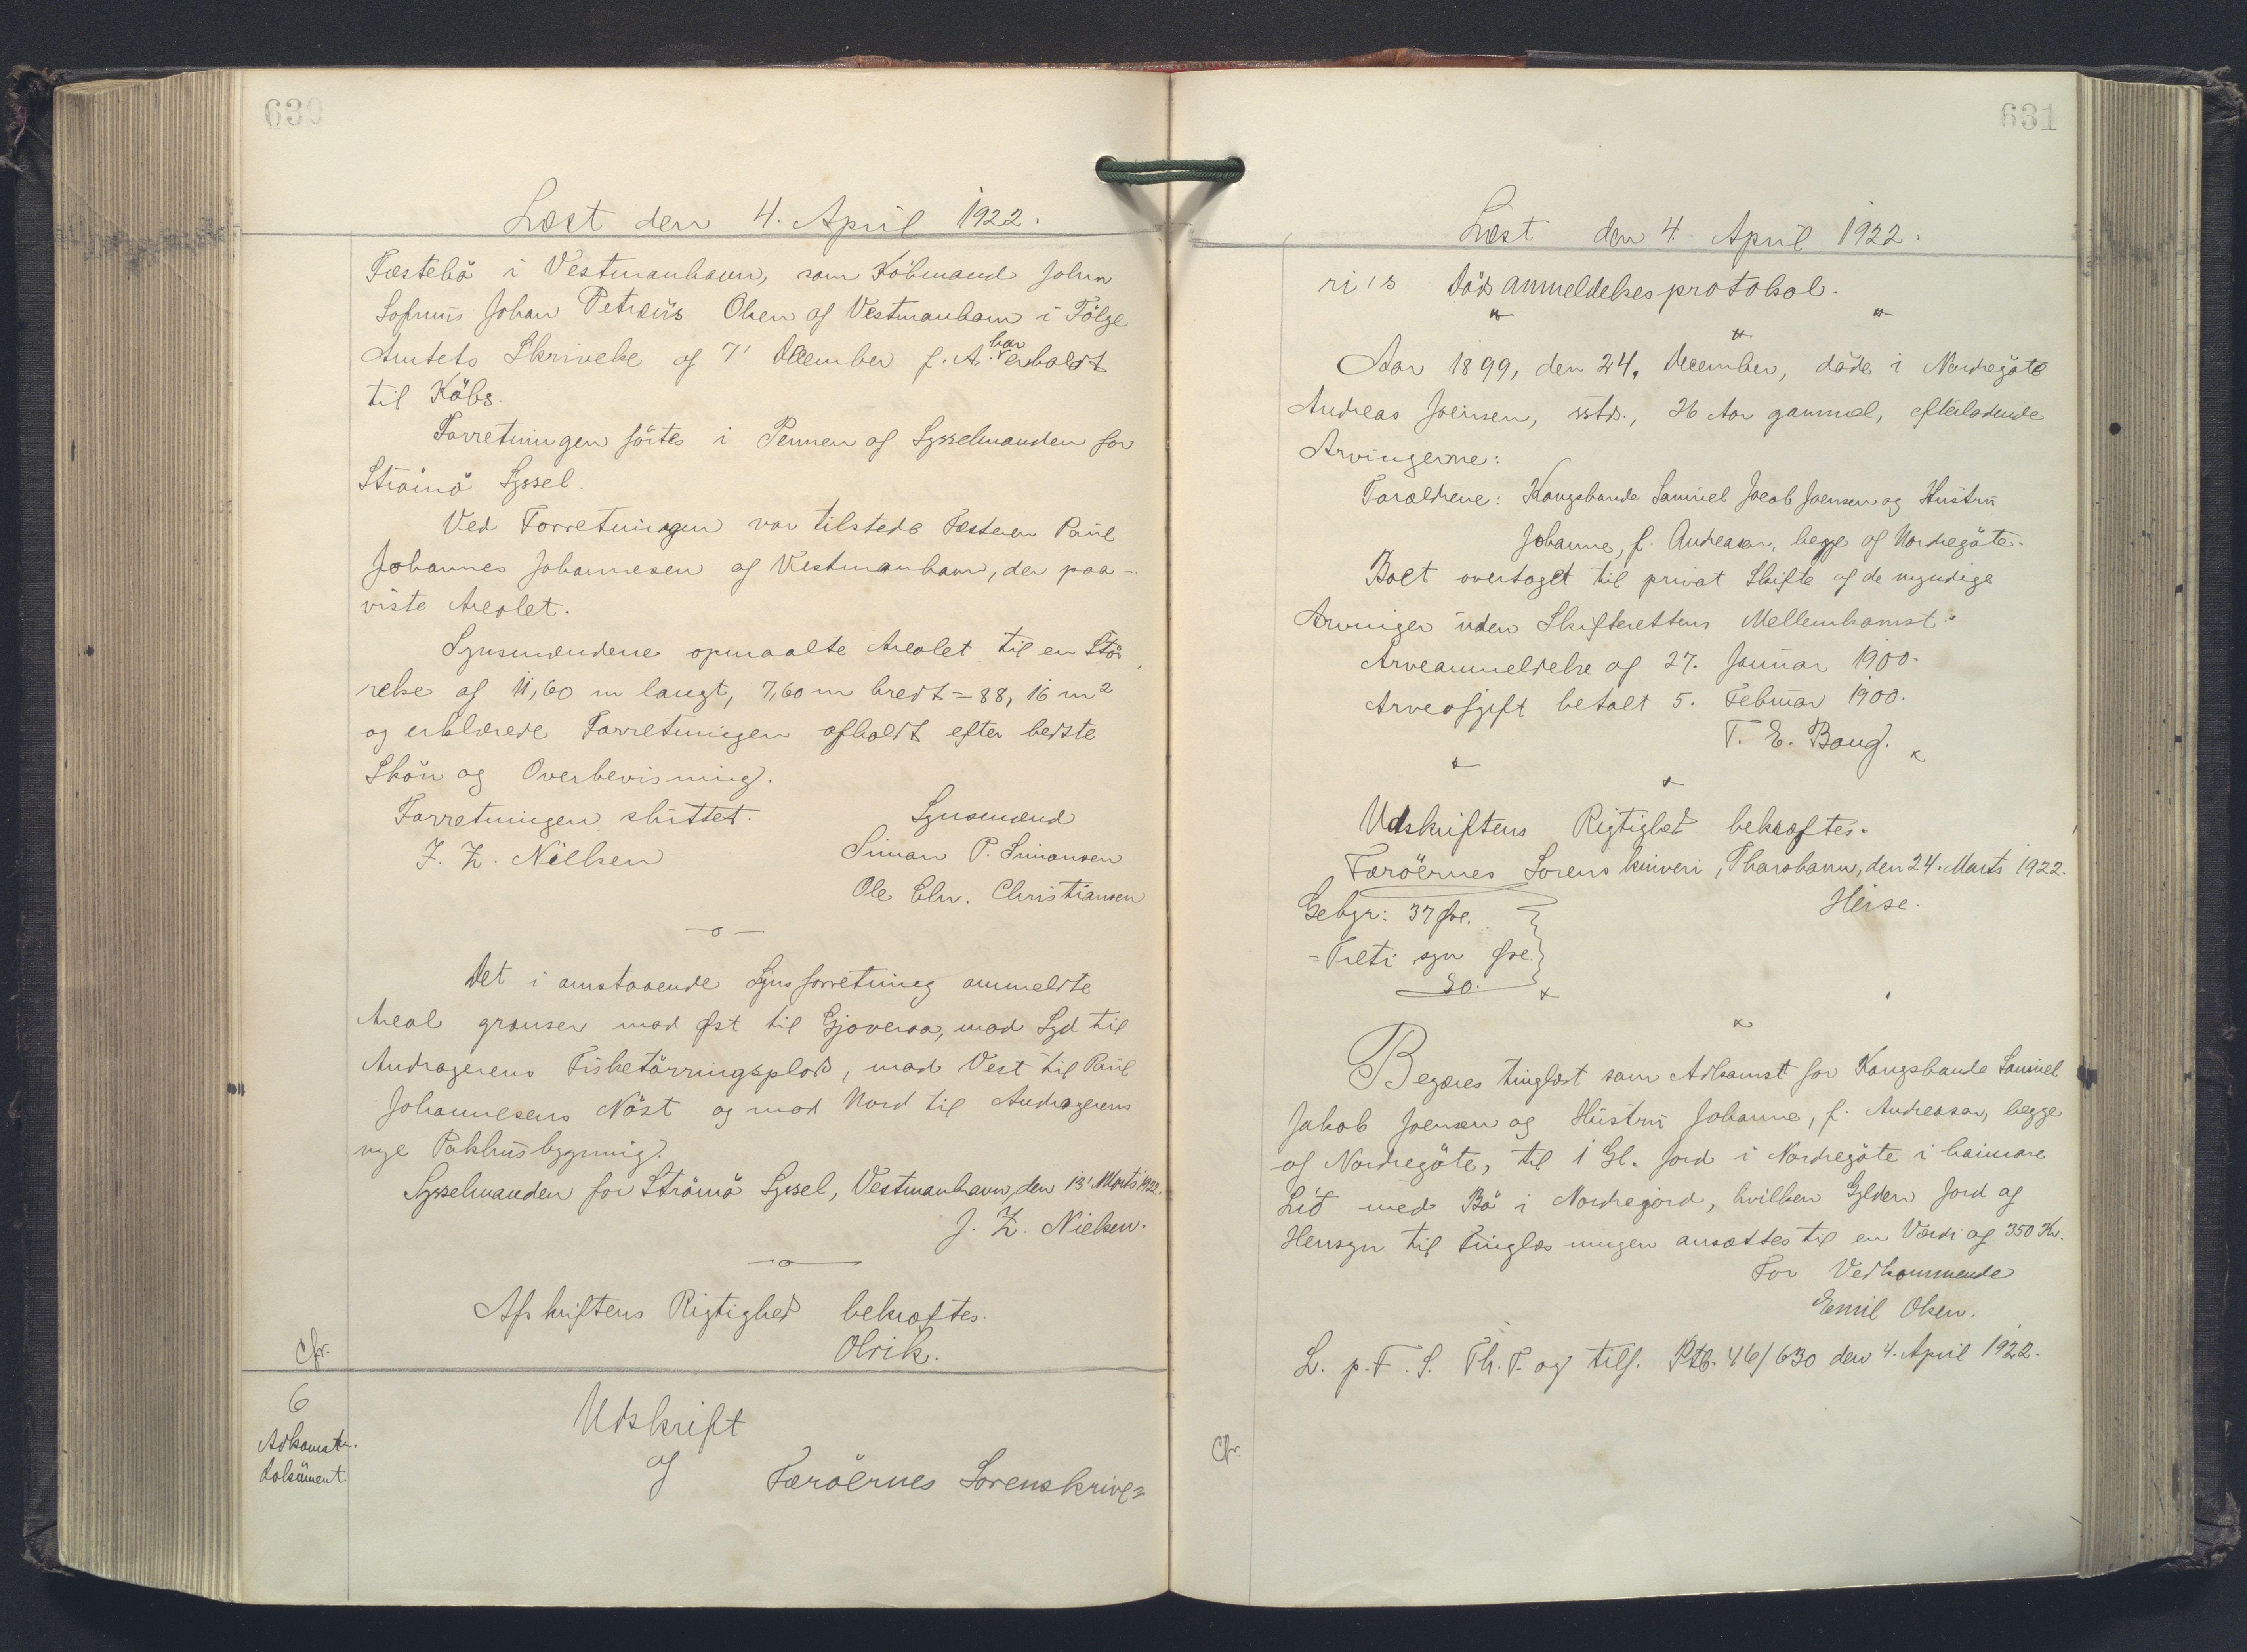 630
Læst den 4. April 1922.
Fæstebö i Vestmanhavn, som Köbmand John
Sofus Johan Petræus Olsen af Vestmanhavn i Fölge
Amtets Skrivelse af 7' December f. A. har erholdt
til Köbs.
Forretningen förtes i Pennen af Sysselmanden for
Strömö Syssel.
Ved Forretningen var tilstede Fæsteren Paul
Johannes Johannesen af Vestmanhavn, der paa-
viste Arealet.
Synsmændene opmaalte Arealet til en Stör
relse af 11,60 m langt, 7,60 m bredt = 88,16 m²
og erklærede Forretningen afholdt efter bedste
Skön og Overbevisning.
Forretningen sluttet.
Synsmænd
J. Z. Nielsen
Simon P. Simonsen
Ole Chr. Christiansen
—o—
Det i omstaaende Synsforretning ommeldte
Areal grænser mod Øst til Gjoveraa, mod Syd til
Andragerens Fisketörringsplads, mod Vest til Paul
Johannesens Nöst og mod Nord til Andragerens
nye Pakhusbygning.
Sysselmanden for Strömö Syssel, Vestmanhavn, den 13' Marts 1922.
J. Z. Nielsen.
—o—
Afskriftens Rigtighed bekræftes.
Olrik.
Cfr.
6
Adkomst-
dokument.
Udskrift
af
Færöernes Sorenskrive=
631
Læst den 4. April 1922.
ri's Dödsanmeldelsesprotokol.
Aar 1899, den 24. December, döde i Nordregöte
Andreas Joensen, sstds., 26 Aar gammel, efterladende
Arvingerne:
Forældrene: Kongsbonde Samuel Jacob Joensen og Hustru
Johanne, f. Andreasen, begge af Nordregöte.
Boet overtaget til privat Skifte af de myndige
Arvinger uden Skifterettens Mellemkomst.
Arveanmeldelse af 27. Januar 1900.
Arveafgift betalt 5. Februar 1900.
T. E. Bang.
Udskriftens Rigtighed bekræftes.
Færöernes Sorenskriveri, Thorshavn, den 24. Marts 1922.
Heise.
Gebyr: 37 Øre.
= Treti syv Øre.
So.
Begæres tinglæst som Adkomst for Kongsbonde Samuel
Jakob Joensen og Hustru Johanne, f. Andreasen, begge
af Nordregöte, til 1 Gl. Jord i Nordregöte i haimare
Lið med Bö i Nordregjord, hvilken Gylden Jord af
Hensyn til Tinglæsningen ansættes til en Værdi af 350 Kr.
For Vedkommende
Emil Olsen.
L. p. F. S. Th. T. og tilf. Ptb. 46/630 den 4. April 1922.
Cfr.